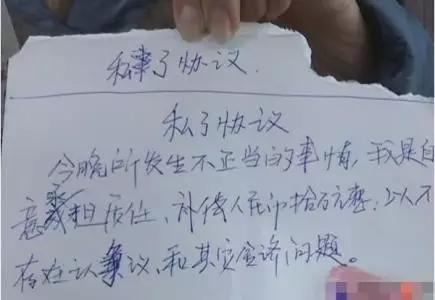 私了协议.
私了协议
今晚所发生不正当的事情,我是自
意承担责任、补偿人民币拾万元整;2人不
存在认议、和其实舍诿问题。